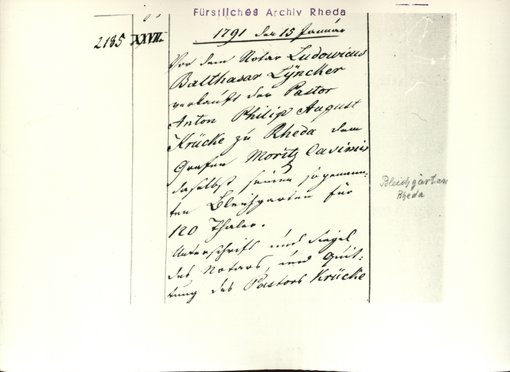 Fürstliches Archiv Rheda
2185 XXVII.
1791 den 15 Januar
Vor dem Notar Ludowicus
Balthasar Lÿncker
verkauft der Pastor
Anton Philip August
Krücke zu Rheda dem
Grafen Moritz Casimir
daselbst seinen sogenann-
ten Bleichgarten für
120 Thaler.
Unterschrift und Siegel
des Notars, und Quit-
tung des Pastors Krücke
Bleichgarten
Rheda